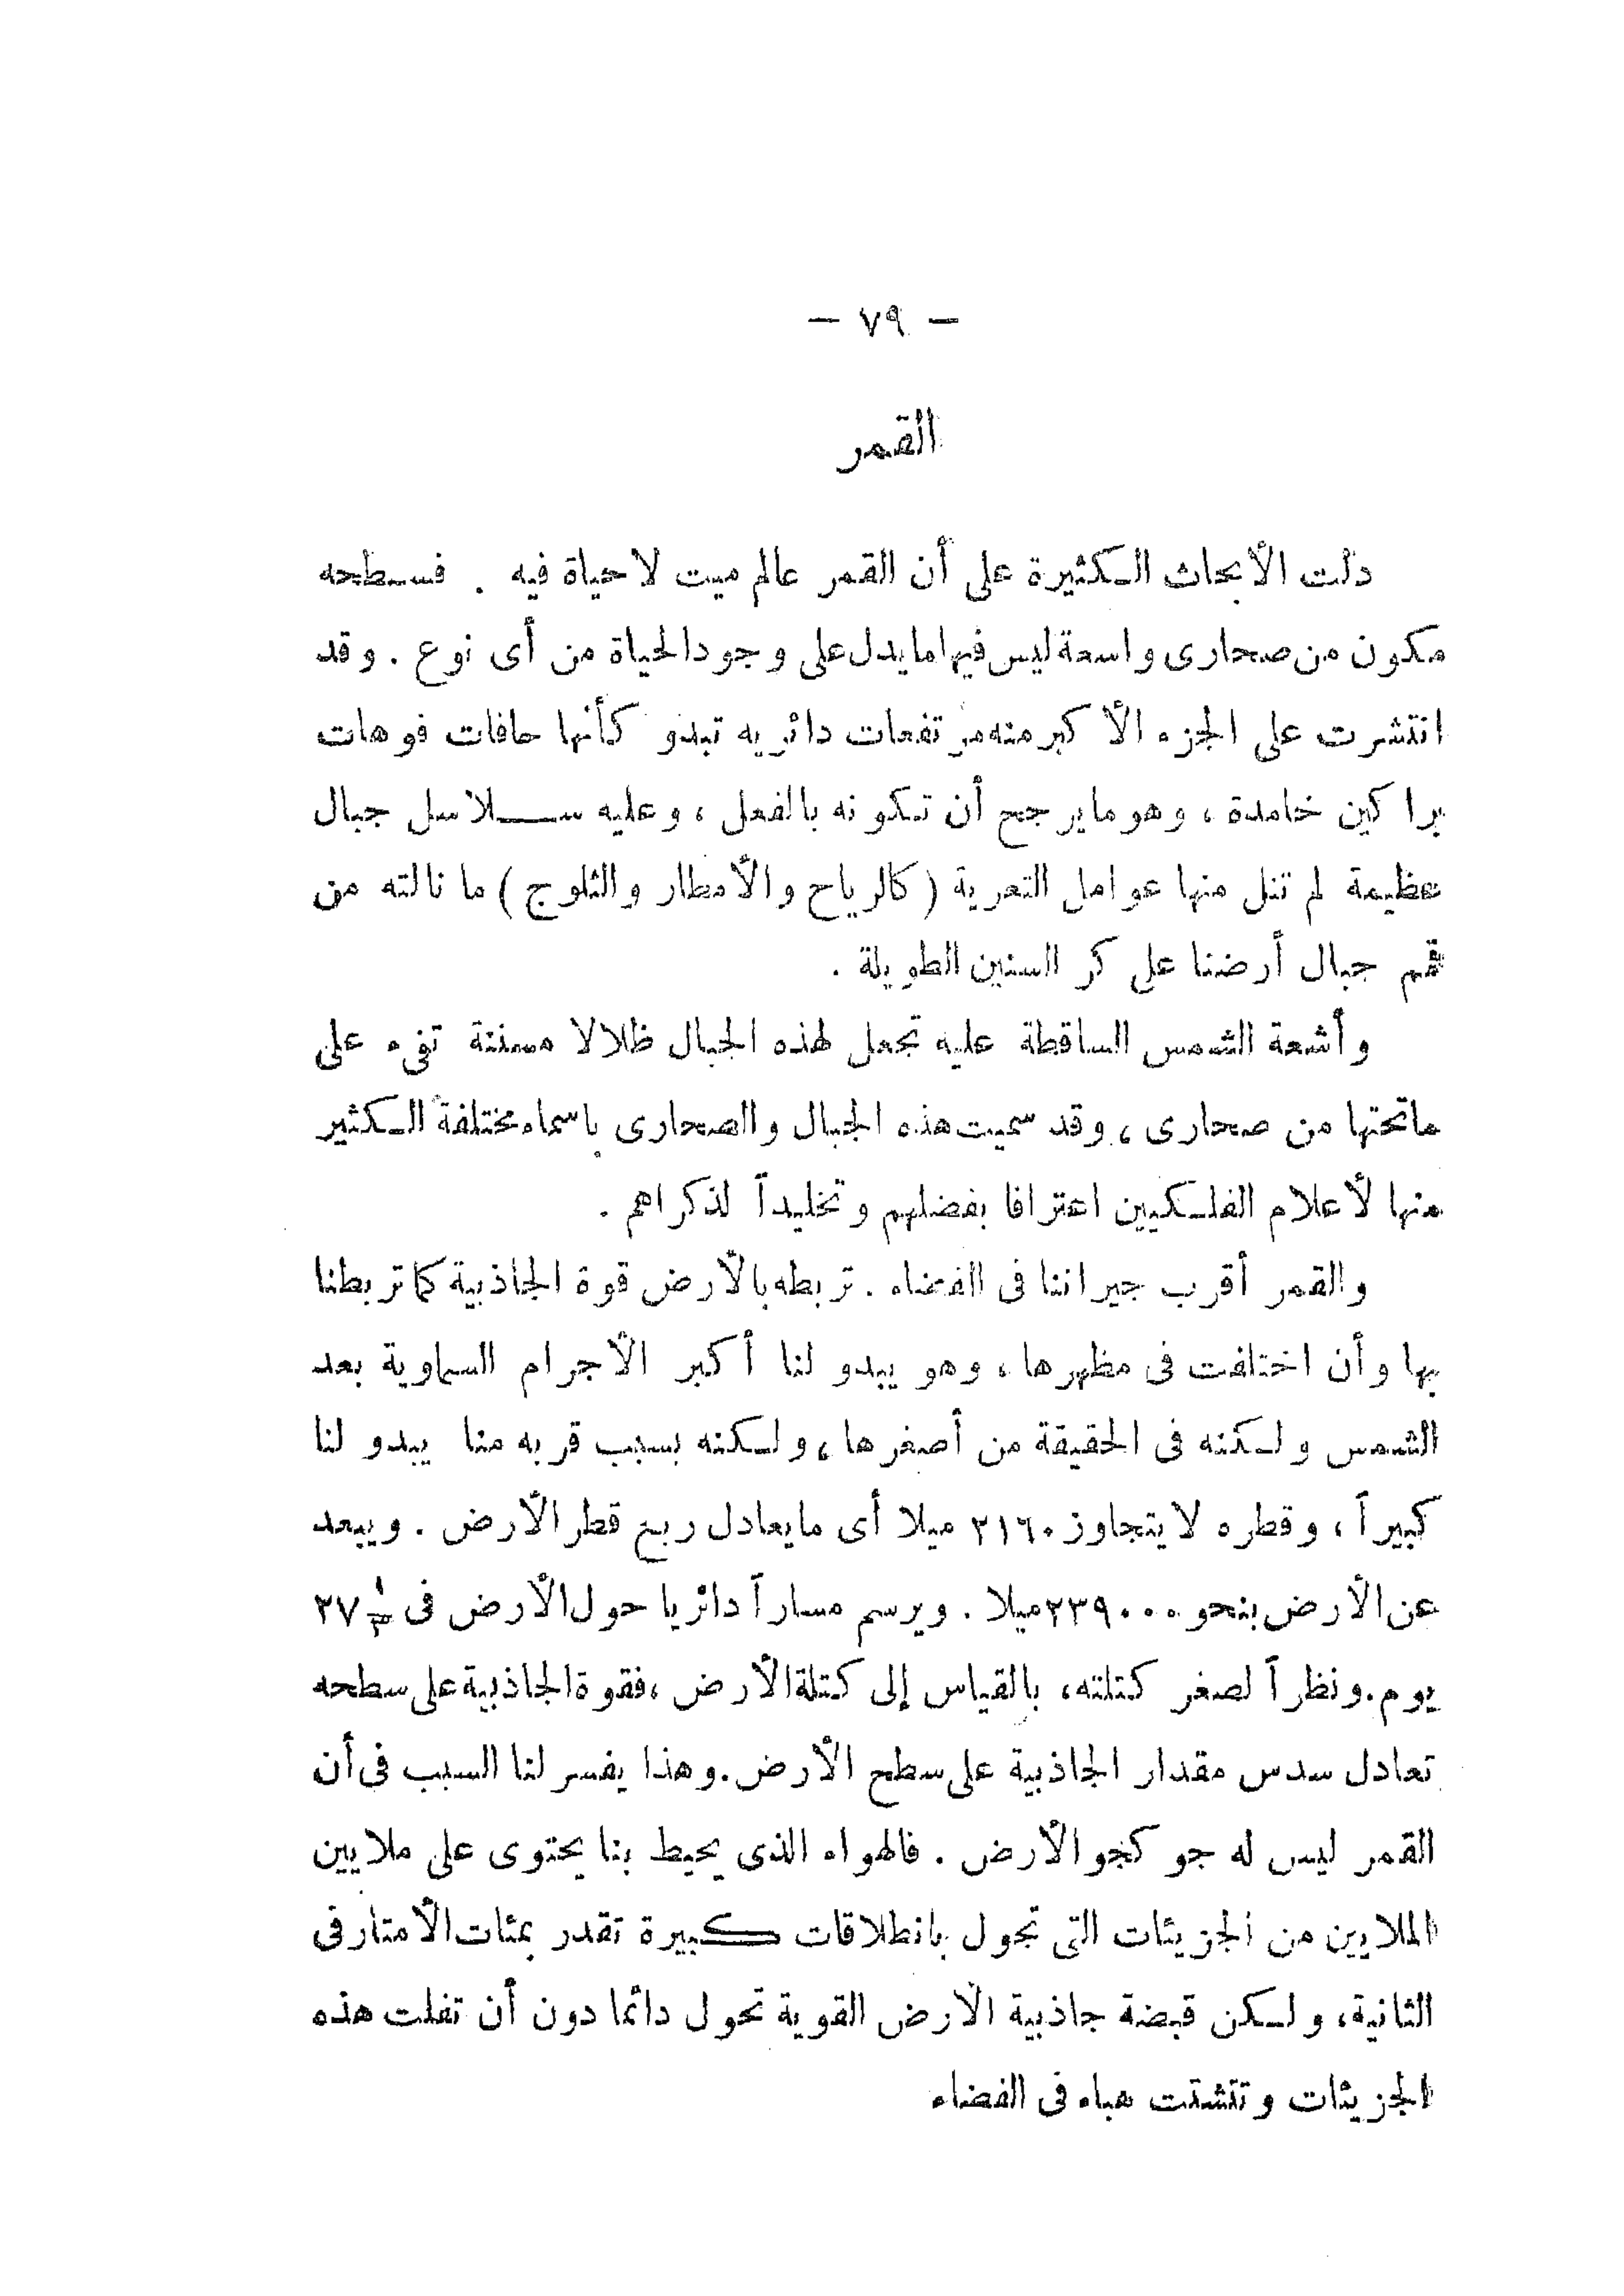 — ٧٩ —
القمر
دلت الأبحاث الكثيرة على أن القمر عالم ميت لا حياة فيه . فسطحه
مكون من صحارى واسعة ليس فيها ما يدل على وجود الحياة من أى نوع . وقد
انتشرت على الجزء الأكبر منه مرتفعات دائريه تبدو كأنها حافات فوهات
براكين خامدة ، وهو ما يرجح أن تكونه بالفعل ، وعليه سلاسل جبال
عظيمة لم تنل منها عوامل التعرية ( كالرياح والأمطار والثلوج ) ما نالته من
قمم جبال أرضنا على كر السنين الطويلة .
وأشعة الشمس الساقطة عليه تجعل لهذه الجبال ظلالا مسننة تفىء على
ما تحتها من صحارى ، وقد سميت هذه الجبال والصحارى باسماء مختلفة الكثير
منها لأعلام الفلكيين اعترافا بفضلهم وتخليداً لذكراهم .
والقمر أقرب جيراننا فى الفضاء . تربطه بالأرض قوة الجاذبية كما تربطنا
بها وأن اختلفت فى مظهرها ، وهو يبدو لنا أكبر الأجرام السماوية بعد
الشمس ولكنه فى الحقيقة من أصغرها ، ولكنه بسبب قربه منا يبدو لنا
كبيراً ، وقطره لا يتجاوز ٢١٦٠ ميلا أى ما يعادل ربع قطر الأرض . ويبعد
عن الأرض بنحو ٢٣٩٠٠٠ ميلا . ويرسم مساراً دائريا حول الأرض فى ٢٧ ١/٣
يوم . ونظراً لصغر كتلته ، بالقياس إلى كتلة الأرض ، فقوة الجاذبية على سطحه
تعادل سدس مقدار الجاذبية على سطح الأرض . وهذا يفسر لنا السبب فى أن
القمر ليس له جو كجو الأرض . فالهواء الذى يحيط بنا يحتوى على ملايين
الملايين من الجزيئات التى تجول بانطلاقات كبيرة تقدر بمئات الأمتار فى
الثانية ، ولكن قبضة جاذبية الأرض القوية تحول دائما دون أن تفلت هذه
الجزيئات وتتشتت هباء فى الفضاء